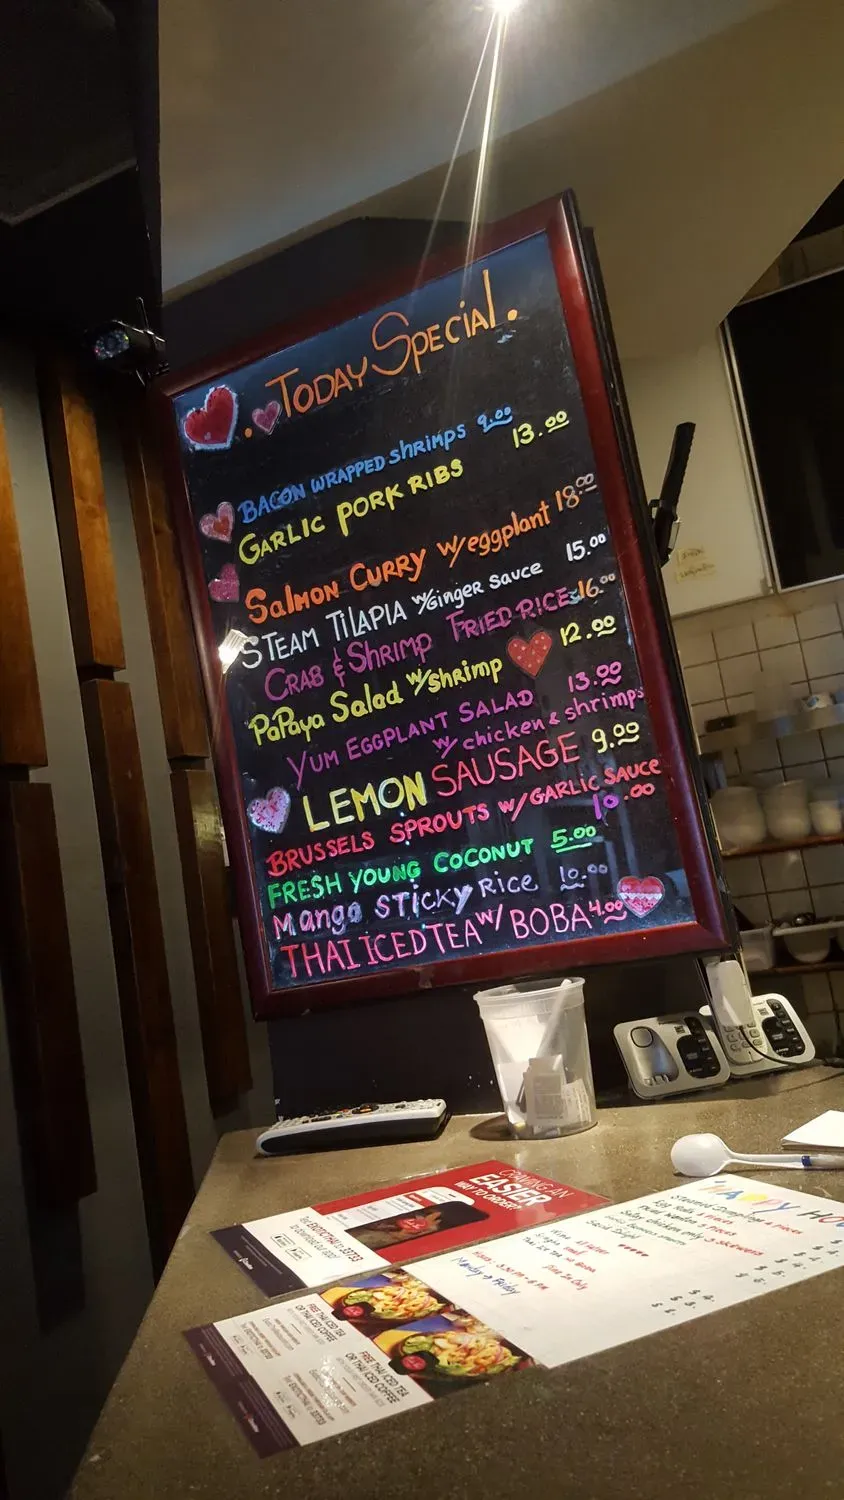 . TODAY SPECIAL .
BACON WRAPPED SHRIMPS 9.00
GARLIC PORK RIBS 13.00
SALMON CURRY w/ eggplant 18.00
STEAM TILAPIA w/Ginger Sauce 15.00
CRAB & SHRIMP FRIED RICE 16.00
PAPAYA Salad w/shrimp 12.00
YUM EGGPLANT SALAD 13.00
w/ chicken & shrimps
LEMON SAUSAGE 9.00
BRUSSELS SPROUTS w/ GARLIC SAUCE
10.00
FRESH YOUNG COCONUT 5.00
Mango STICKY RICE 10.00
THAI ICED TEA w/ BOBA 4.00
CRAVING AN
EASIER
WAY TO ORDER?
Text EXOTICTHAI to 33733
to download our app!
HAPPY HOU
Steamed Dumplings 4 pieces
Monday - Friday
FREE THAI ICED TEA
OR THAI ICED COFFEE
Text EXOTICTHAI to 33733
FREE THAI ICED TEA
OR THAI ICED COFFEE
Text EXOTICTHAI to 33733